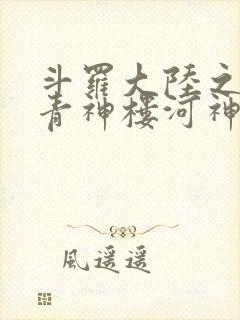 斗羅大陸之
青神樓河神
風遥遥